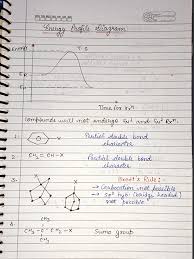 Energy Profile Diagram
Energy
T.S
E R
E P
Time for rxn
Compounds will not undergo SN1 and SN2 Rxn.
1.
X
Partial double bond
character
2. CH2 = CH - X
Partial double bond
character
3.
X
Bredt's Rule :-
→ Carbocation not possible
→ Sp2 hyb. (bridge headed)
not possible
4.
CH3
CH3 - C - CH2 - X
CH3